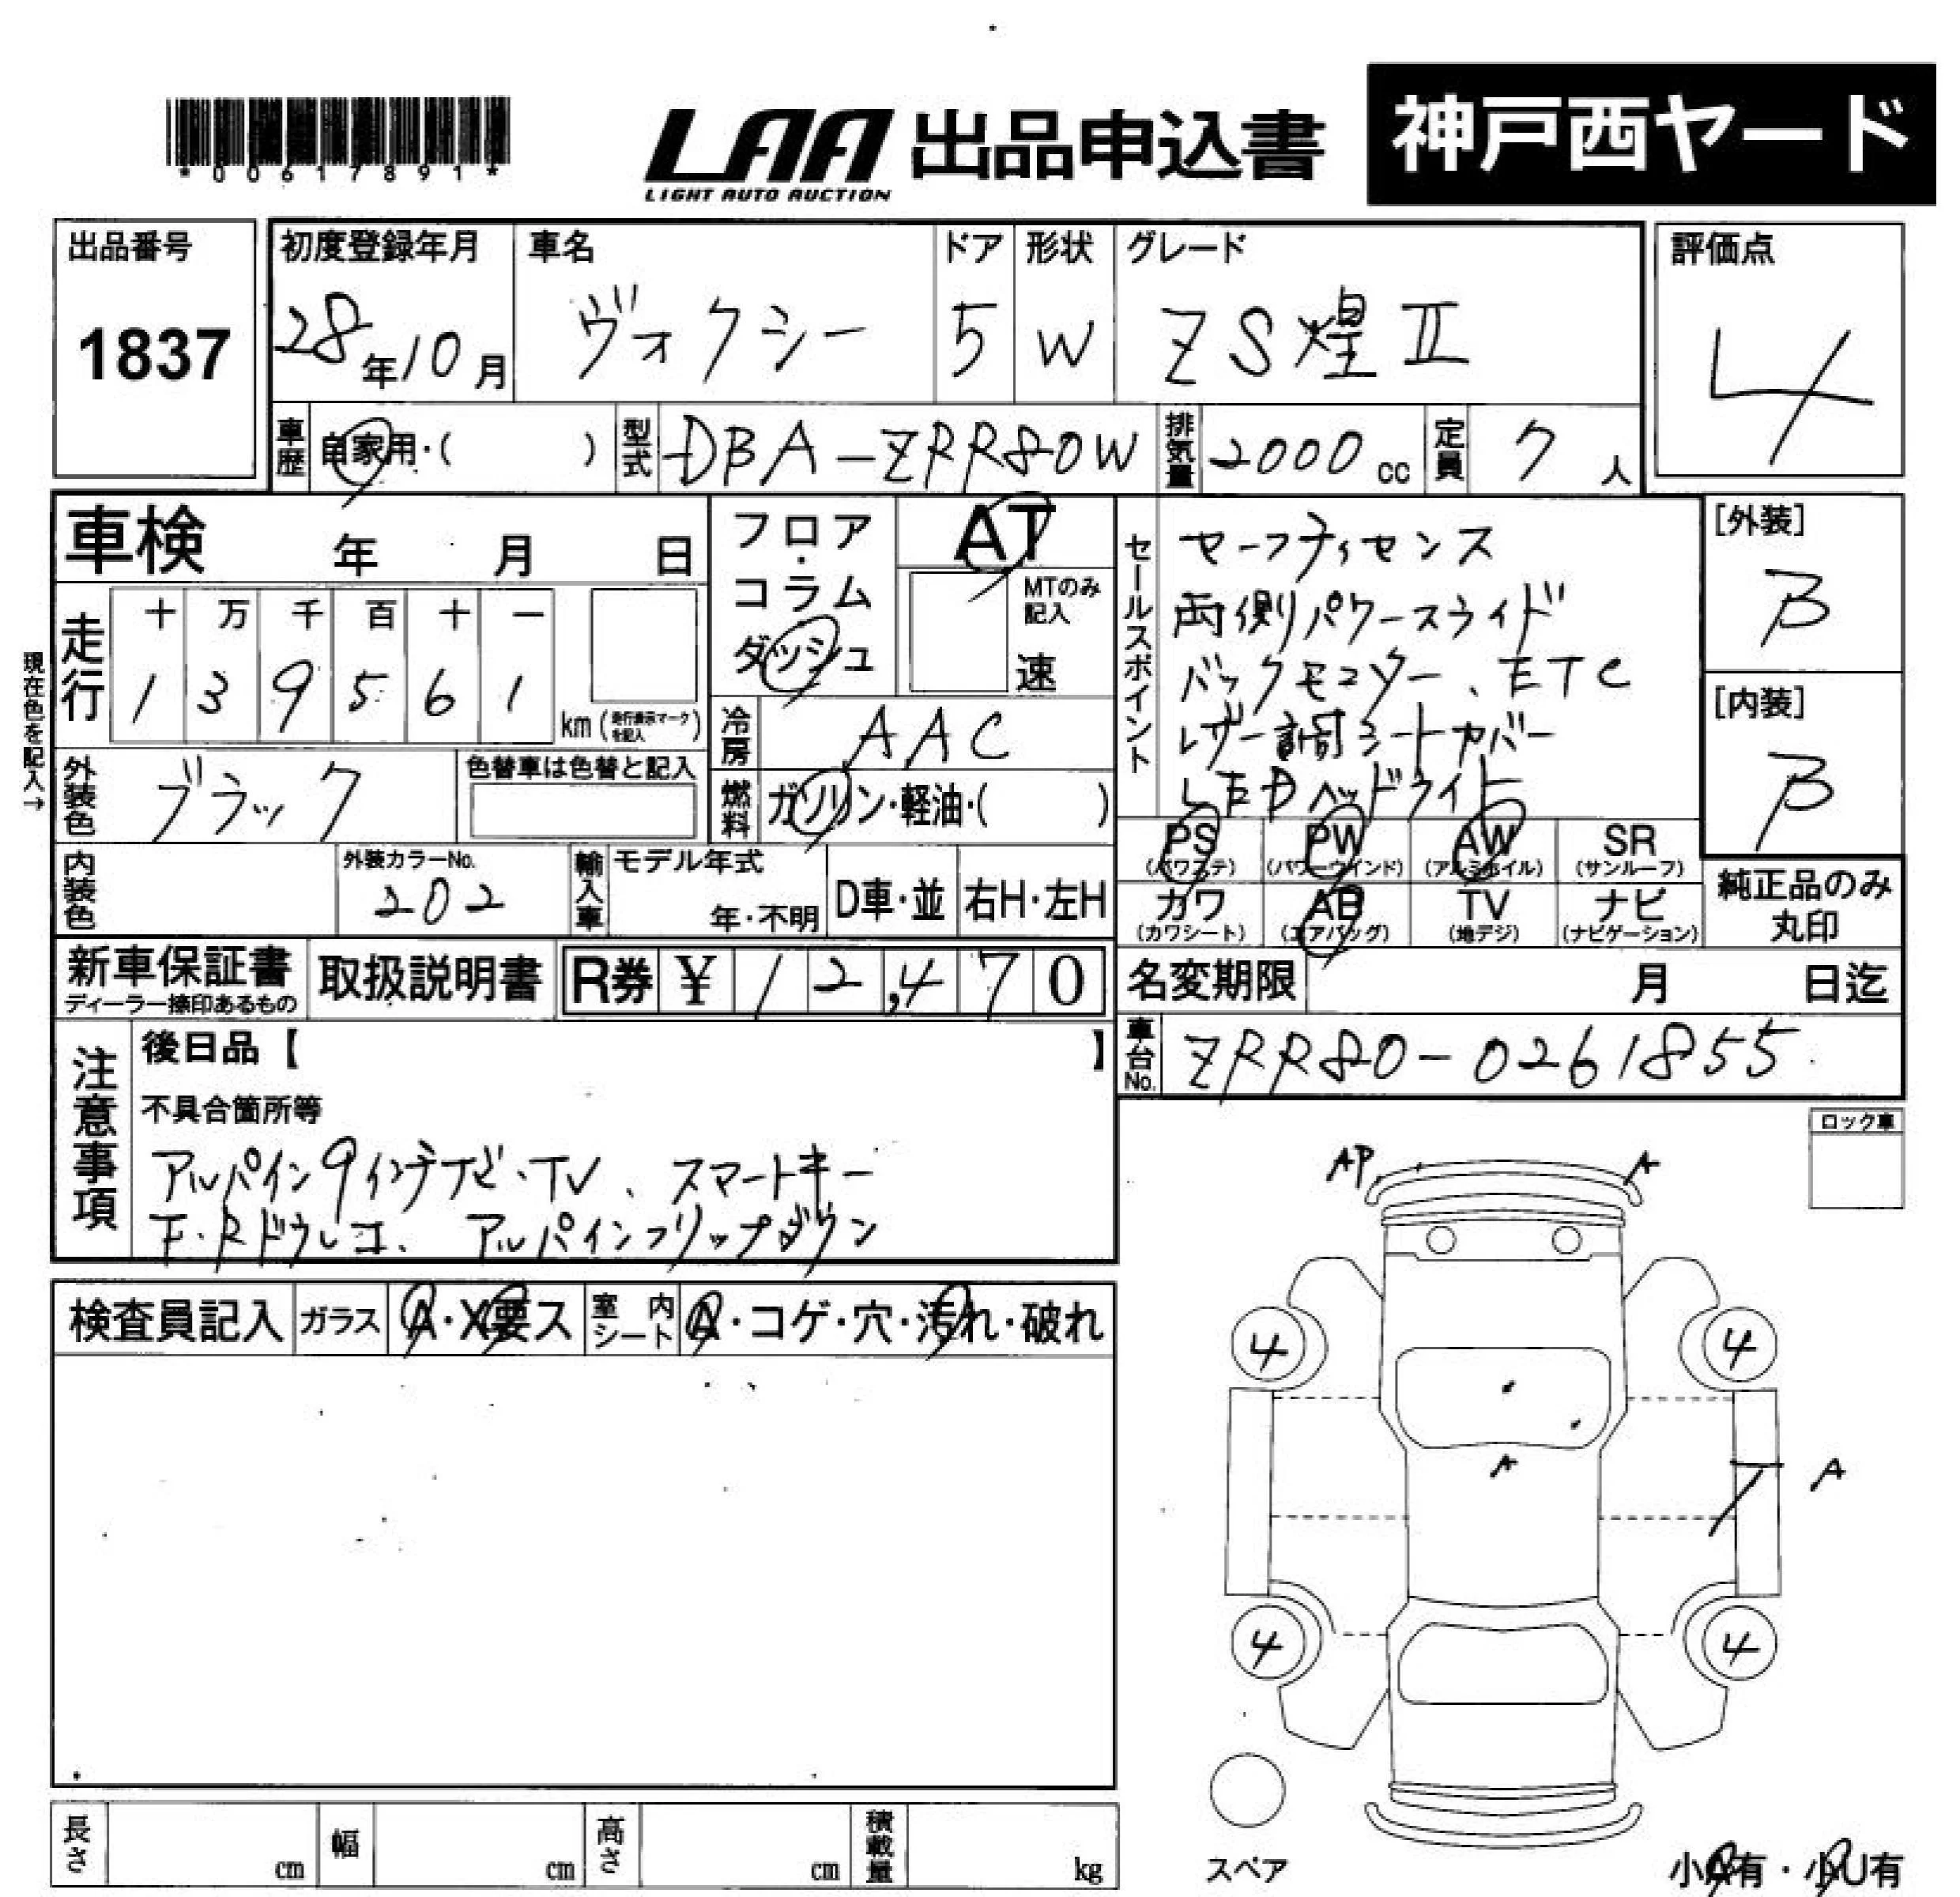 *00617891*
LAA 出品申込書 神戸西ヤード
LIGHT AUTO AUCTION
出品番号 初度登録年月 車名 ドア 形状 グレード 評価点
1837 28年10月 ヴォクシー 5 W ZS煌Ⅱ 4
車歴 自家用・( ) 型式 DBA-ZRR80W 排気量 2000cc 定員 7人
車検 年 月 日
フロア・コラム ダッシュ
AT
MTのみ記入
速
現在色を記入→
走行 十 万 千 百 十 一
1 3 9 5 6 1 km(走行表示マークを記入)
冷房 AAC
外装色 ブラック 色替車は色替と記入
燃料 ガソリン・軽油・( )
セールスポイント
セーフティセンス
両側パワースライド
バックモニター、ETC
レザー調シートカバー
LEDヘッドライト
[外装]
B
[内装]
B
PS PW AW SR
(パワステ) (パワーウインド) (アルミホイル) (サンルーフ)
カワ AB TV ナビ
(カワシート) (エアバッグ) (地デジ) (ナビゲーション)
純正品のみ
丸印
内装色 外装カラーNo. 202 輸入車 モデル年式 年・不明 D車・並 右H・左H
新車保証書 取扱説明書 R券 ¥12,470
ディーラー捺印あるもの
名変期限 月 日迄
車台No. ZRR80-0261855
注意事項
後日品【 】
不具合箇所等
アルパイン9インチナビ・TV、スマートキー
F.Rドラレコ、アルパインフリップダウン
検査員記入 ガラス A・X要ス 室内シート A・コゲ・穴・汚れ・破れ
ロック車
AP A
4 4
A
A
4 4
スペア
小A有・小U有
長さ cm 幅 cm 高さ cm 積載量 kg